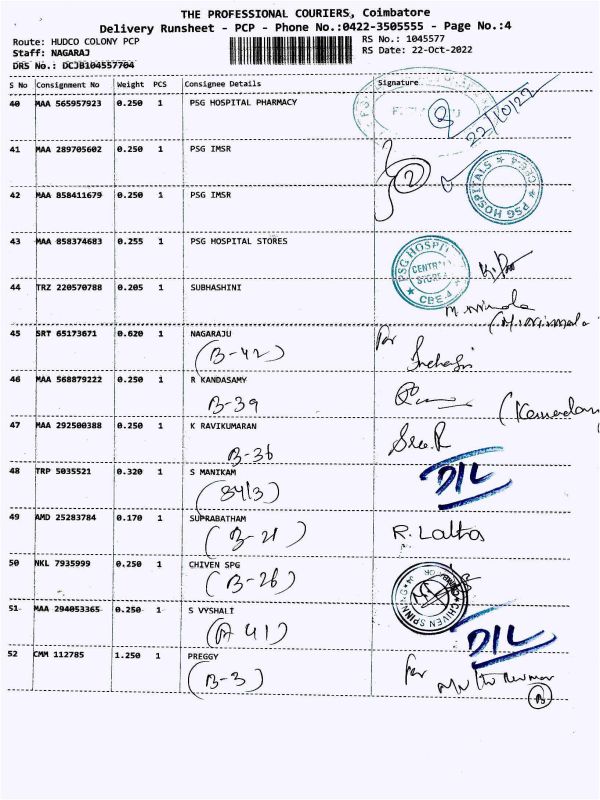 THE PROFESSIONAL COURIERS, Coimbatore
Delivery Runsheet - PCP - Phone No.:0422-3505555 - Page No.:4
Route: HUDCO COLONY PCP
RS No.: 1045577
Staff: NAGARAJ
RS Date: 22-Oct-2022
DRS No.: DCJB104557704
S No Consignment No Weight PCS Consignee Details Signature
40 MAA 565957923 0.250 1 PSG HOSPITAL PHARMACY
22/10/22
41 MAA 289705602 0.250 1 PSG IMSR
2
PSG HOSPITALS CBE-4
42 MAA 858411679 0.250 1 PSG IMSR
43 MAA 058374683 0.255 1 PSG HOSPITAL STORES
PSG HOSPITALS CENTRAL STORES CBE-4
44 TRZ 220570788 0.205 1 SUBHASHINI
45 SRT 65173671 0.620 1 NAGARAJU
(B-42)
46 MAA 568879222 0.250 1 R KANDASAMY
B-39
47 MAA 292500388 0.250 1 K RAVIKUMARAN
B-36
48 TRP 5035521 0.320 1 S MANIKAM
(84/3) D/L
49 AMD 25283784 0.170 1 SUPRABATHAM
(B-21) R. Latha
50 NKL 7935999 0.250 1 CHIVEN SPG
(B-26) CHIVEN SPINNING
51 MAA 294053365 0.250 1 S VYSHALI
(A 41) D/L
52 CMM 112785 1.250 1 PREGGY
(B-3) for
B